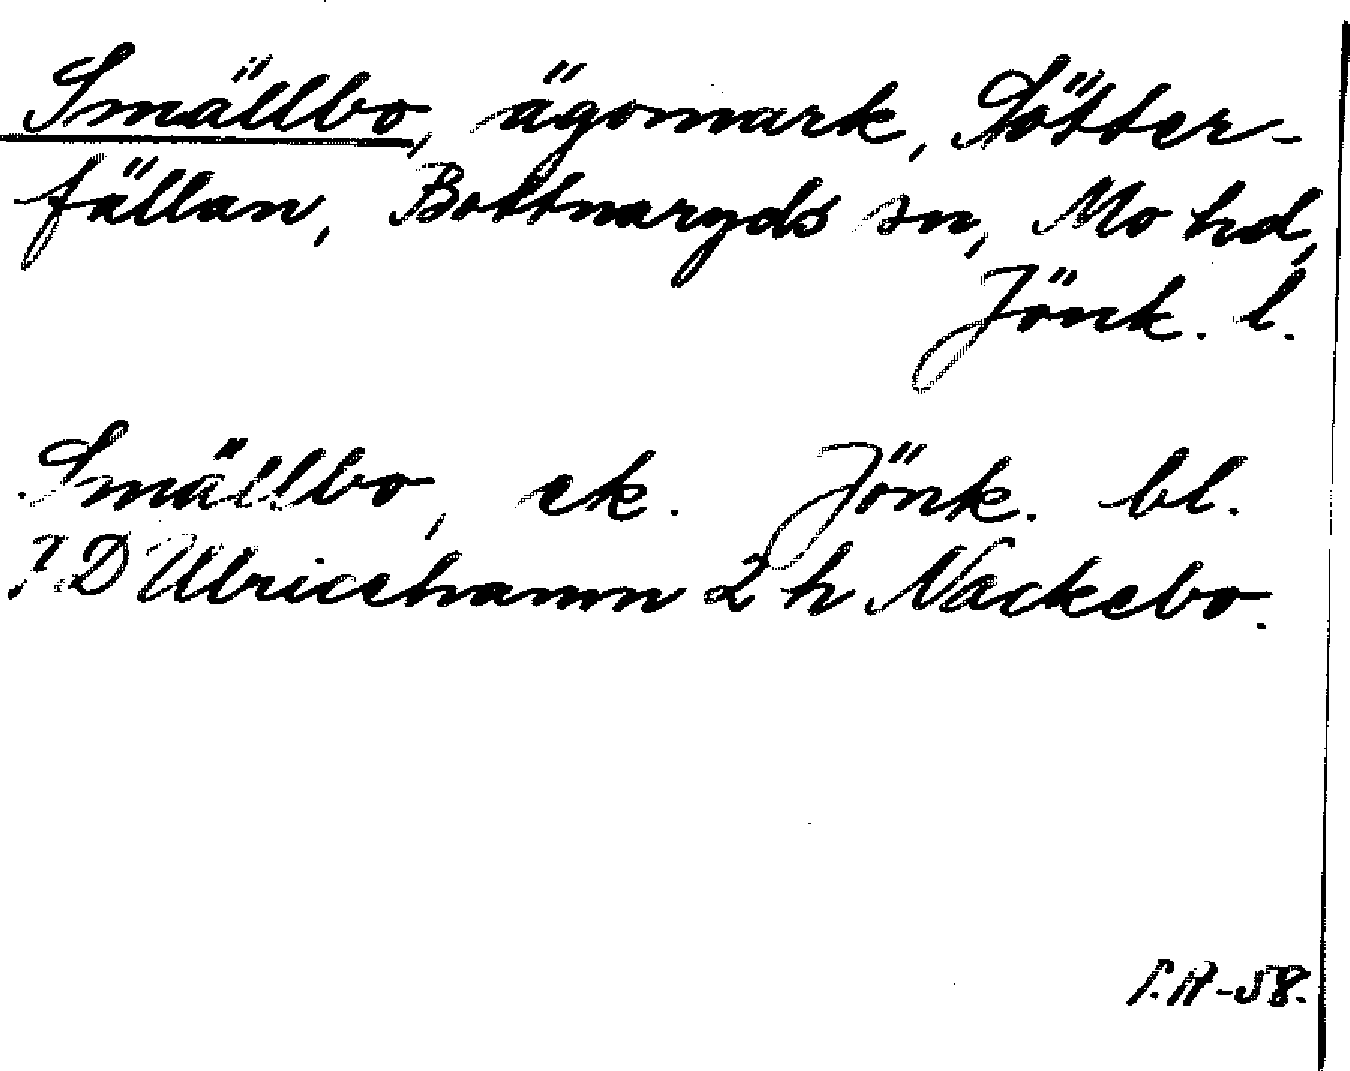 Smällbo, ägomark, Sötter-
fällan, Bottnaryds sn, Mo hd,
Jönk. l.
Smällbo, ek. Jönk. bl.
7 D Ulricehamn 2 h Nackebo.
-58.